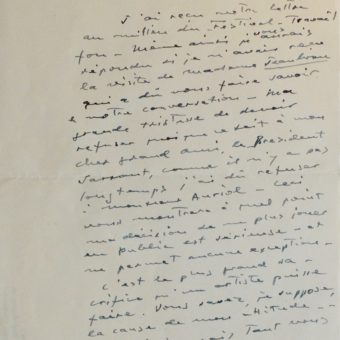 J'ai reçu votre lettre
au milieu du Festival - Travail
fou - Même ainsi je vous aurais
répondu si je n'avais reçu
la visite de Madame
qui a dû vous faire savoir
notre conversation - Ma
grande tristesse de devoir
refuser quoique ce soit à mon
cher grand ami le Président
Sarraut, comme il n'y a pas
longtemps j'ai dû refuser
à Monsieur Auriol - Ceci
vous montrera à quel point
ma décision de ne plus jouer
en public est sérieuse - et
ne permet aucune exception -
C'est le plus grand sa-
crifice qu'un artiste puisse
faire. Vous savez, je suppose,
la cause de mon attitude -
tout vous